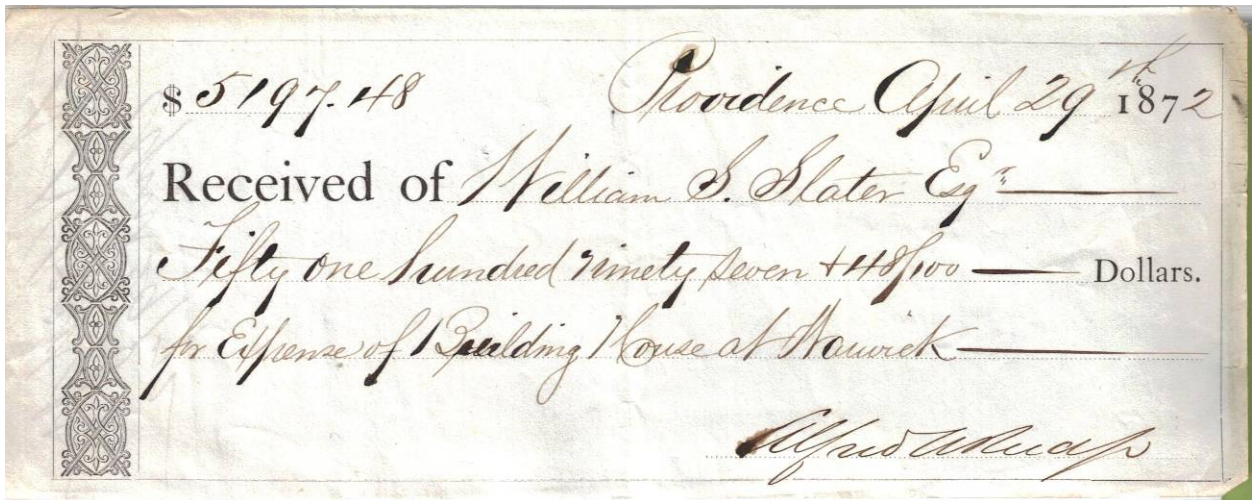 $ 5197.48 Providence April 29th 1872
Received of William S. Slater Esqr
Fifty one hundred ninety seven + 48/100 Dollars.
for Expense of Building House at Warwick
Alfred